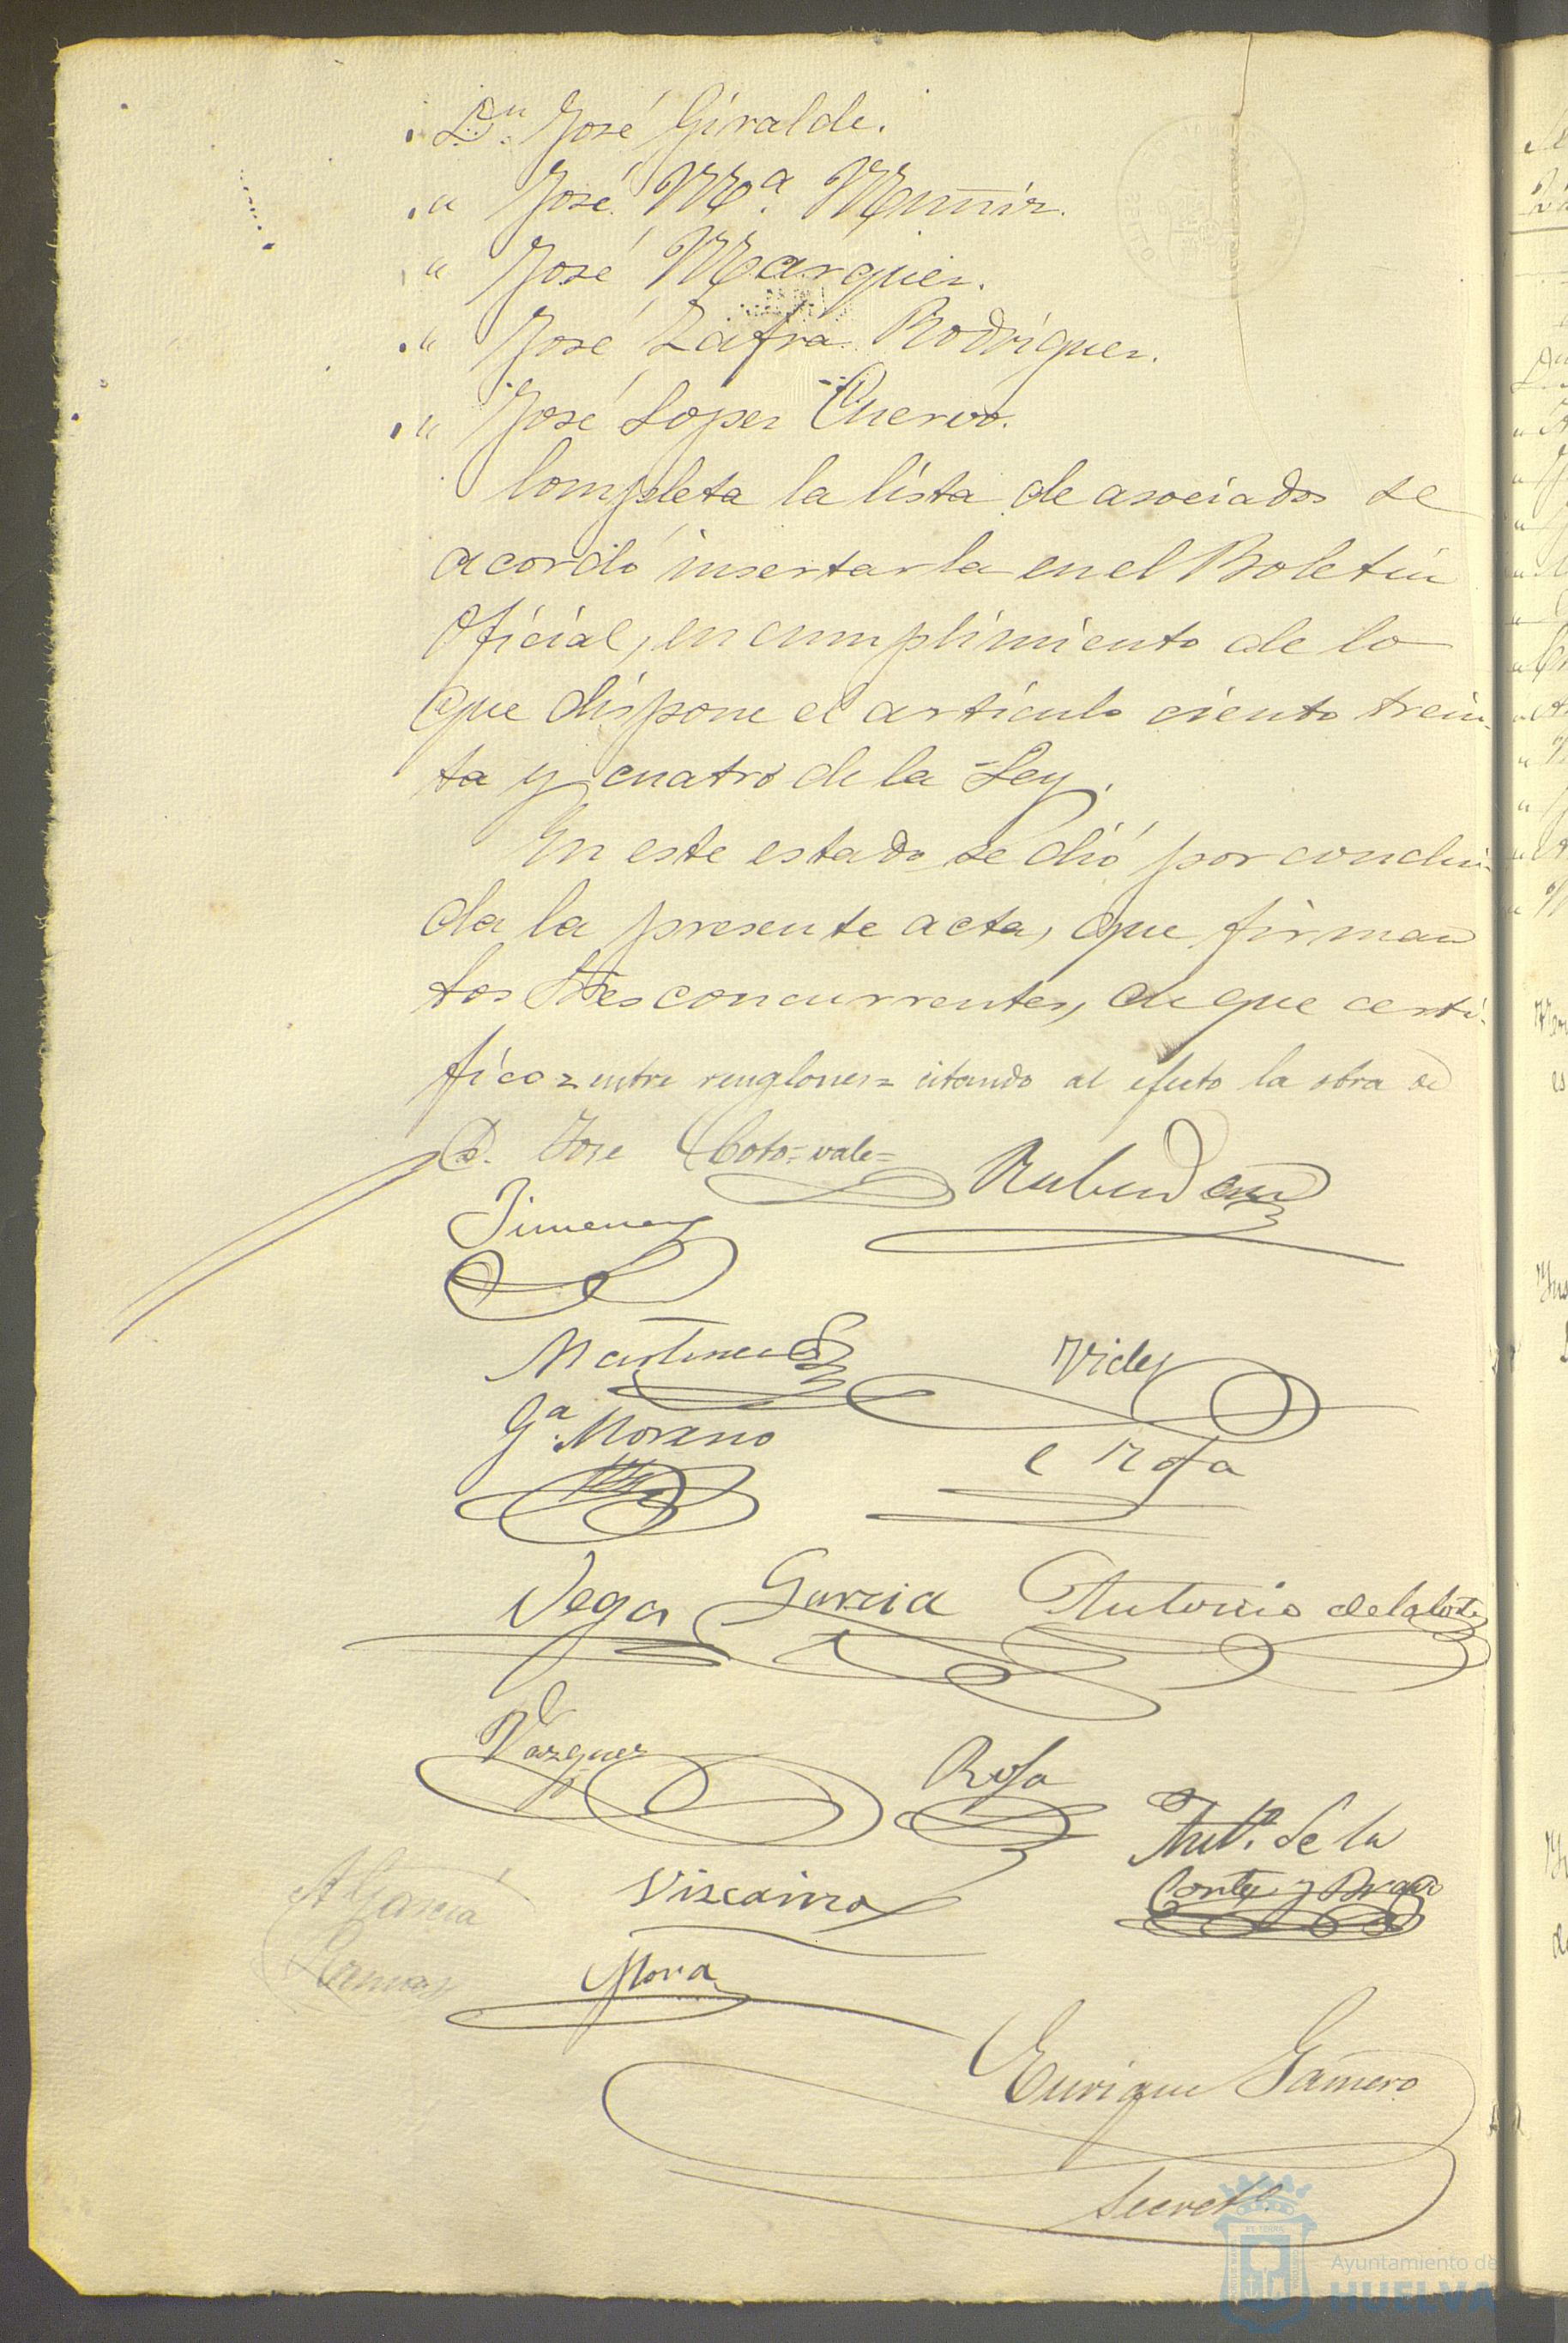 Dn. José Giralde.
" José Mª. Muñiz.
" José Marquez.
" José Zafra Rodriguez.
" José Lopez Cuervo.
Completa la lista de asociados se
acordó insertarla en el Boletin
Oficial, en cumplimiento de lo
que dispone el articulo ciento trein-
ta y cuatro de la Ley.
En este estado se dió por conclui-
da la presente acta, que firman
los Sres concurrentes, de que certi-
fico = entre renglones = citando al efecto la obra de
D. Jose Coto = vale =
Jimenez
Martinez
Videz
Gª. Moreno
Rofa
Vega Garcia Antonio de la Corte
Vazquez
Rofa
Antº. de la
Corte y
Vizcaino
A Garcia
Ramos
Mora
Enrique Gamero
Secretº.
Ayuntamiento de
HUELVA